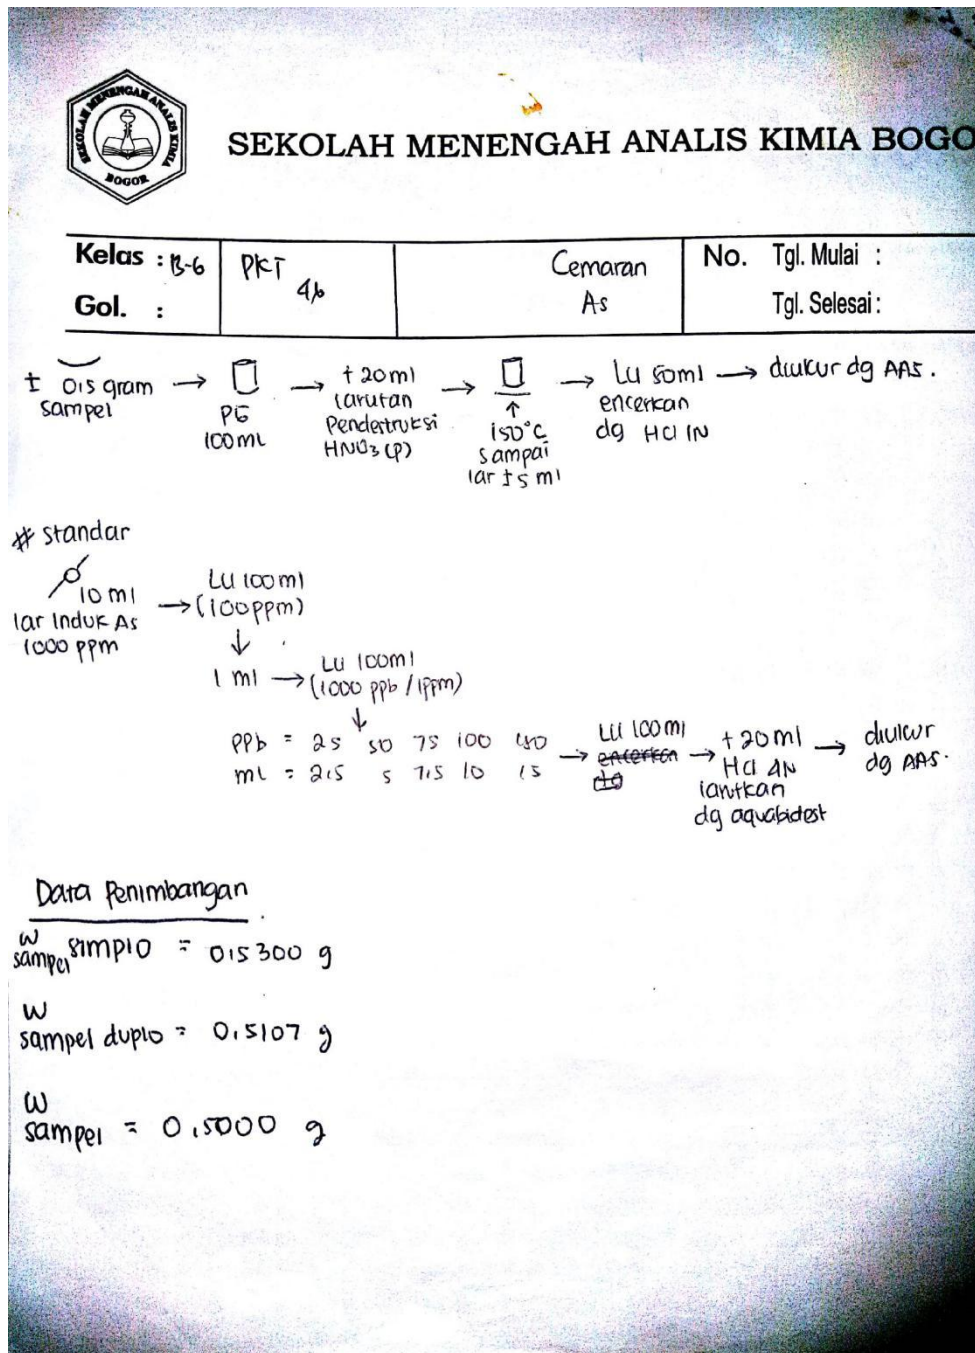 SEKOLAH MENENGAH ANALIS KIMIA
BOGOR
SEKOLAH MENENGAH ANALIS KIMIA BOGO
Kelas : B-6
Gol. :
PKT
4b
Cemaran
As
No. Tgl. Mulai :
Tgl. Selesai :
± 0,5 gram
sampel
→
PG
100ml
→
+20ml
larutan
Pendestruksi
HNO3 (P)
→
↑
150°C
sampai
lar ± 5 ml
→
Lu 50ml
encerkan
dg HCl 1N
→ diukur dg AAS.
# standar
10 ml
lar Induk As
1000 ppm
→
Lu 100ml
(100ppm)
↓
1 ml →
Lu 100ml
(1000 ppb / 1ppm)
↓
PPb = 25 50 75 100 150
ml = 2,5 5 7,5 10 15
→
Lu 100ml
encerkan
dg
→
+ 20ml
HCl 4N
lanjtkan
dg aquabidest
→
diukur
dg AAS.
Data Penimbangan
W
sampel simplo = 0,5300 g
W
sampel duplo = 0,5107 g
W
sampel = 0,5000 g